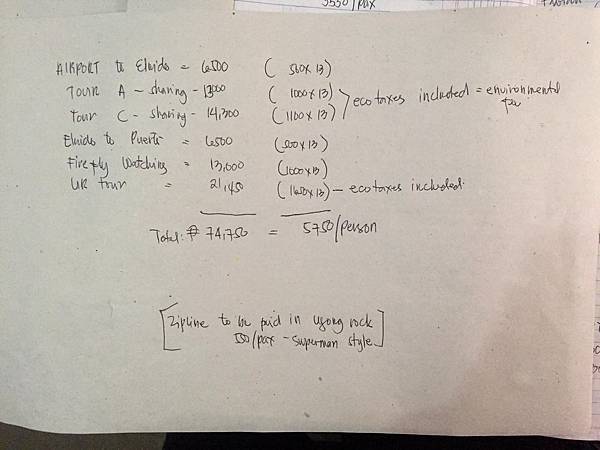 5550/pax
AIRPORT to Elnido = 6500 ( 500 x 13 )
TOUR A - sharing - 13000 ( 1000 x 13 )
Tour C - sharing - 14,300 ( 1100 x 13 ) ecotaxes included = environmental
Elnido to Puerto = 6500 ( 500 x 13 )
Firefly Watching = 13,000 ( 1000 x 13 )
UR tour = 21,450 ( 1650 x 13 ) - ecotaxes included.
Total: ₱ 74,750 = 5750/person
[ Zipline to be paid in ugong rock
/pax - superman style ]